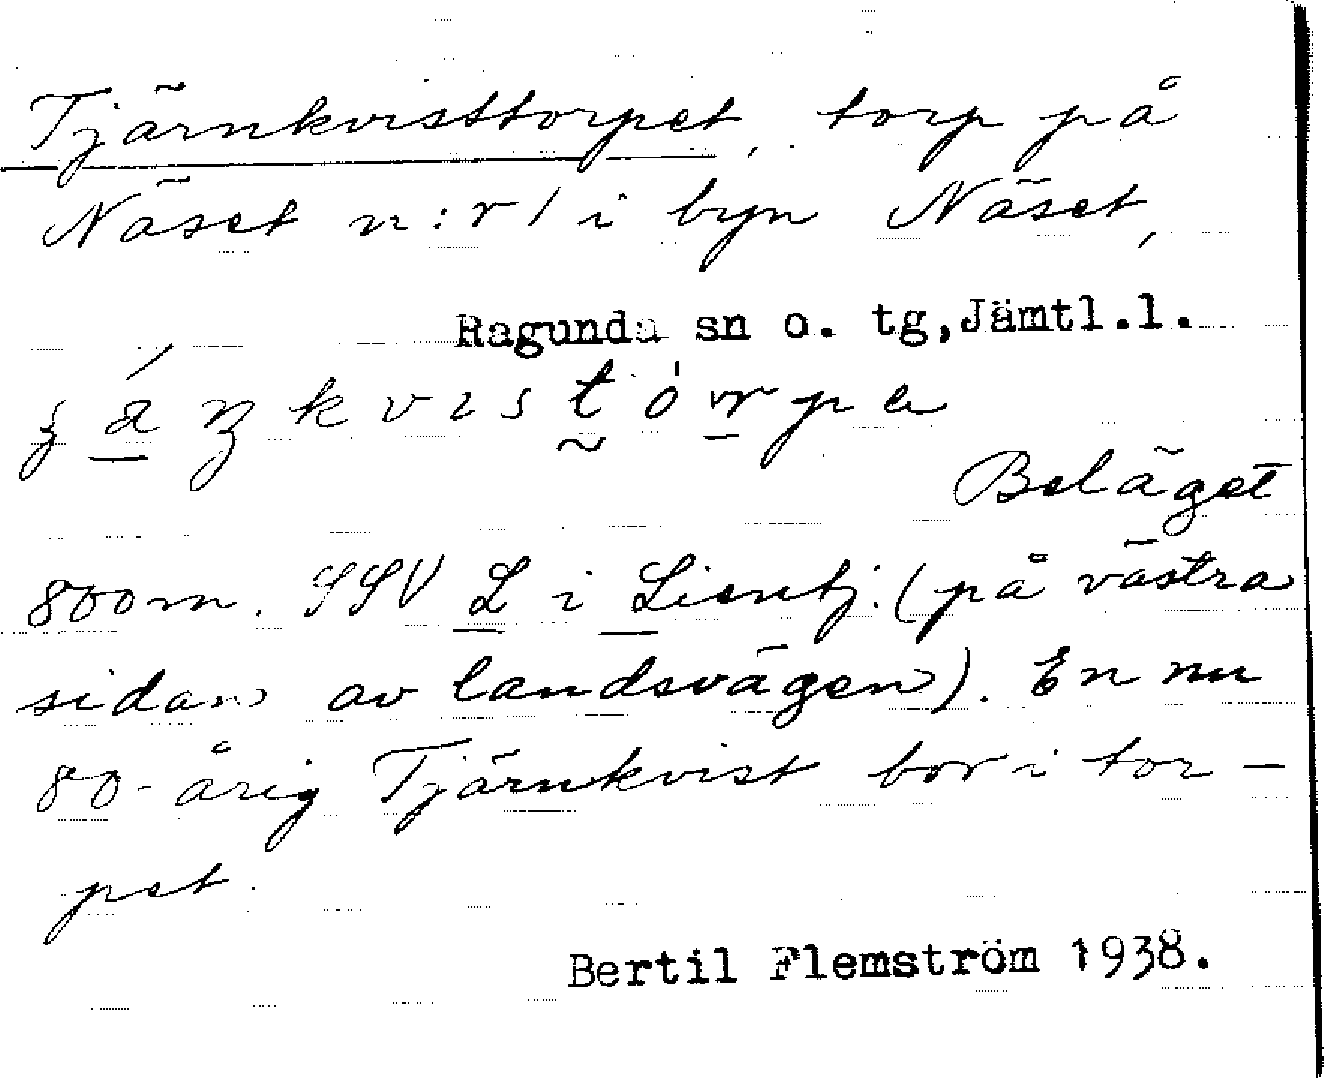 Tjärnkvisttorpet, torp på
Näset n:r 1 i byn Näset,
Ragunda sn o. tg, Jämtl.l.
kvistórpa
Beläget
800 m. SSV L i Lientj. (på västra
sidan av landsvägen). En nu
80-årig Tjärnkvist bor i tor-
pet.
Bertil Flemström 1938.